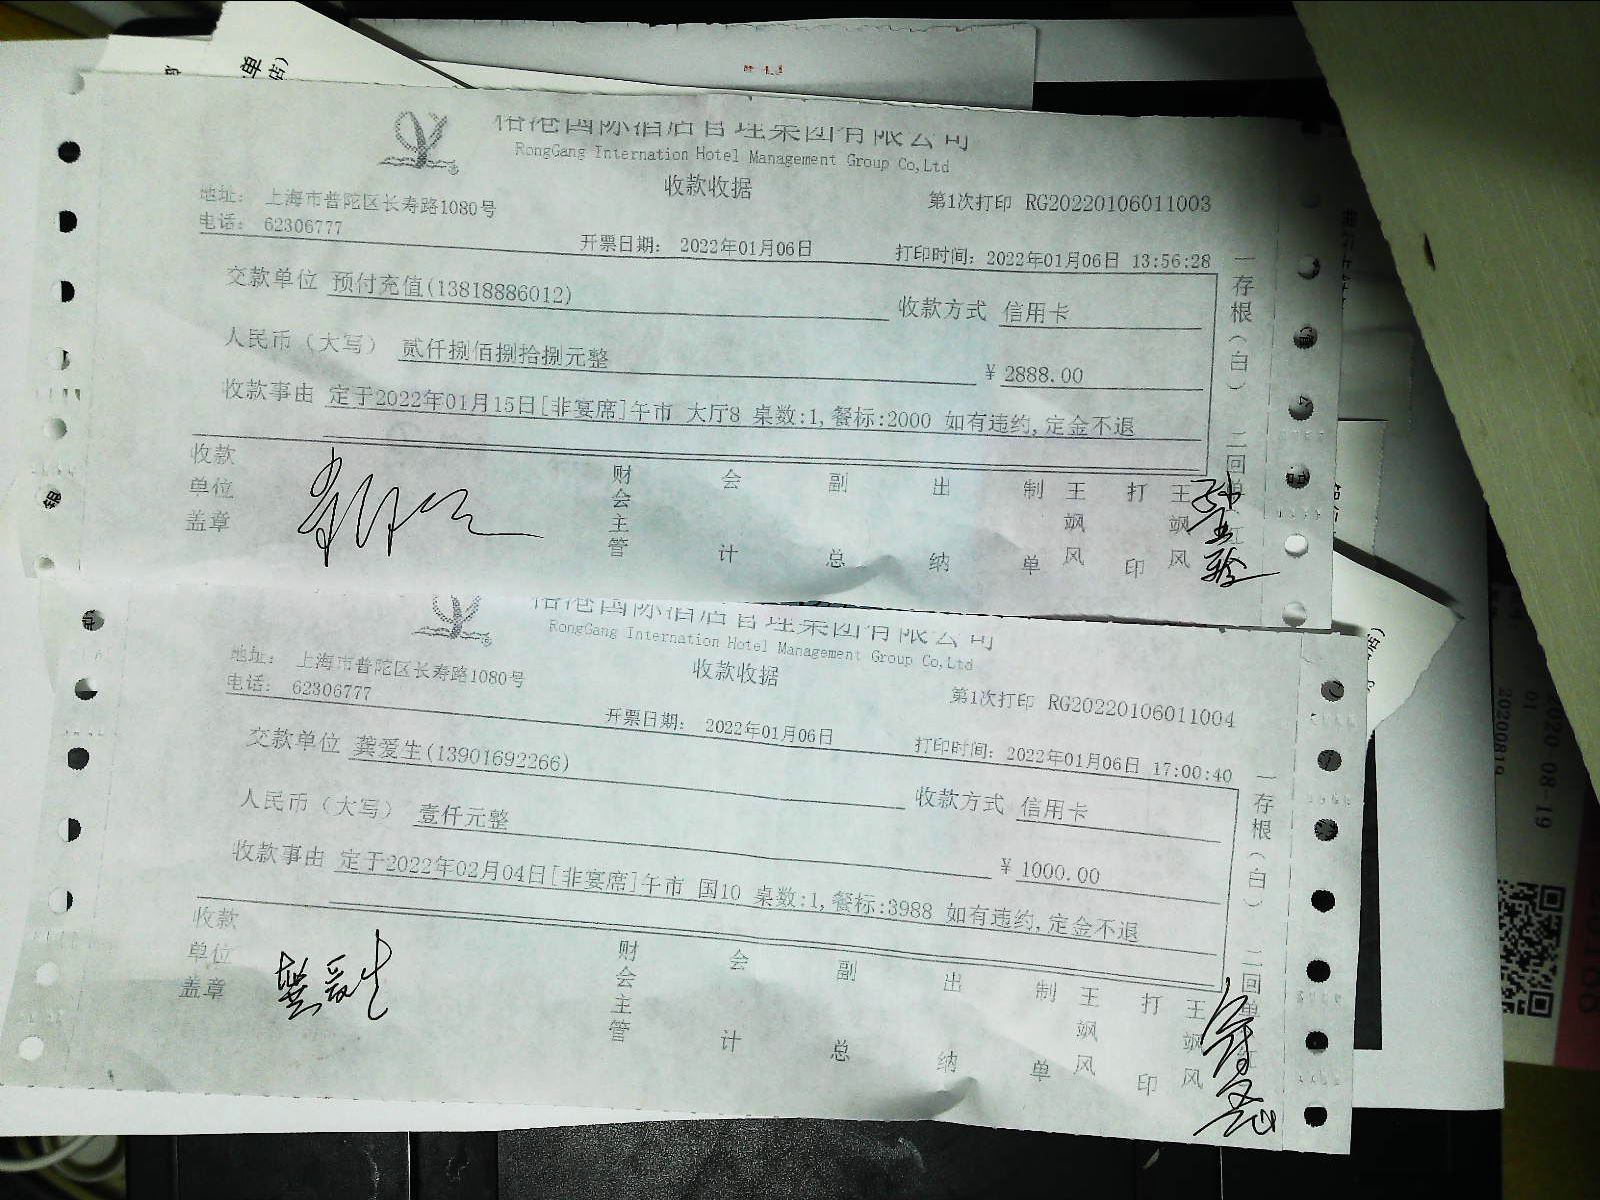 单
店)
榕港国际酒店管理集团有限公司
RongGang Internation Hotel Management Group Co,Ltd
收款收据
地址: 上海市普陀区长寿路1080号
第1次打印 RG20220106011003
电话: 62306777
开票日期: 2022年01月06日
打印时间: 2022年01月06日 13:56:28
交款单位 预付充值(13818886012)
收款方式 信用卡
人民币(大写) 贰仟捌佰捌拾捌元整
¥ 2888.00
收款事由 定于2022年01月15日[非宴席]午市 大厅8 桌数:1,餐标:2000 如有违约,定金不退
一存根(白) 二回单(红
收款单位盖章
财会主管
会计
副总
出纳
制单
王飒风
打印
王飒风
榕港国际酒店管理集团有限公司
RongGang Internation Hotel Management Group Co,Ltd
收款收据
地址: 上海市普陀区长寿路1080号
第1次打印 RG20220106011004
电话: 62306777
开票日期: 2022年01月06日
打印时间: 2022年01月06日 17:00:40
交款单位 龚爱生(13901692266)
收款方式 信用卡
人民币(大写) 壹仟元整
¥ 1000.00
收款事由 定于2022年02月04日[非宴席]午市 国10 桌数:1,餐标:3988 如有违约,定金不退
一存根(白) 二回单(红
收款单位盖章
龚爱生
财会主管
会计
副总
出纳
制单
王飒风
打印
王飒风
2020-08-19
01
20200819